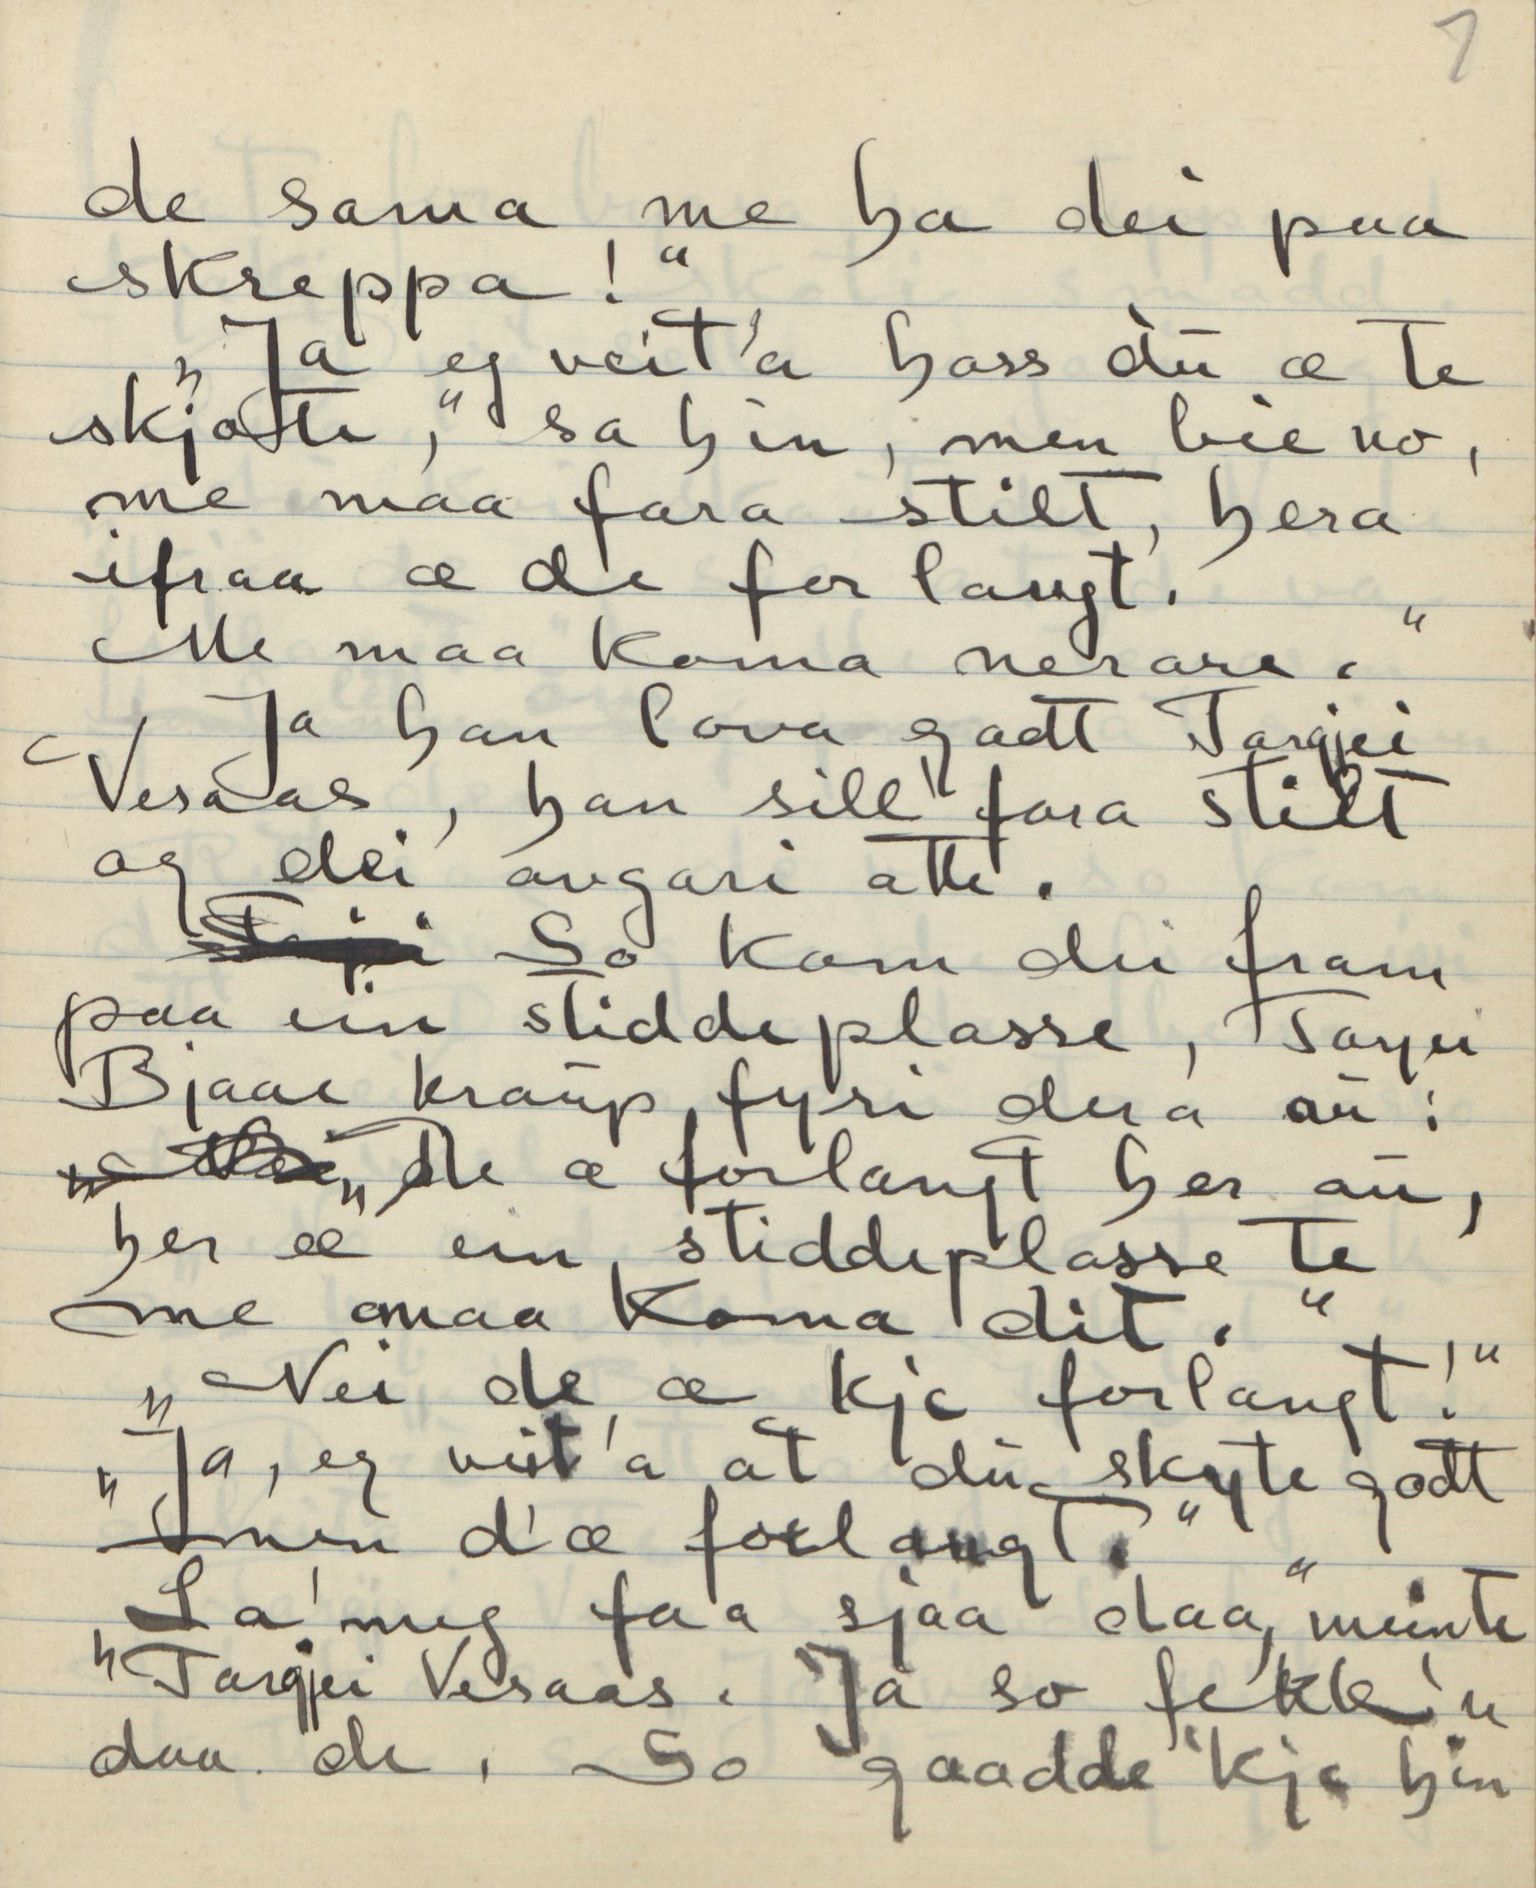 7
de sama me ha dei paa
skreppa!"
„Ja eg veit'a hoss dü æ te
skjotte," sa hin, men bie no,
me maa fara stilt, hera
ifraa æ de for langt.
Me maa koma nerare."
Ja han lova godt Targjei
Vesaas, han sill' fara stilt
og dei avgari atte.
So kom dei fram
paa ein stiddeplasse, Targei
Bjaae kraup fyri der'a au:
„De æ forlangt her au,
her æ ein stiddeplasse te
me maa koma dit."
„Nei de æ kje forlangt!"
„Ja, eg veit'a at dü skyte godt
men d'æ forlangt."
„La' meg faa sjaa daa," meinte
Targjei Vesaas. Ja so fekk'n
daa de. So gaadde 'kje hin